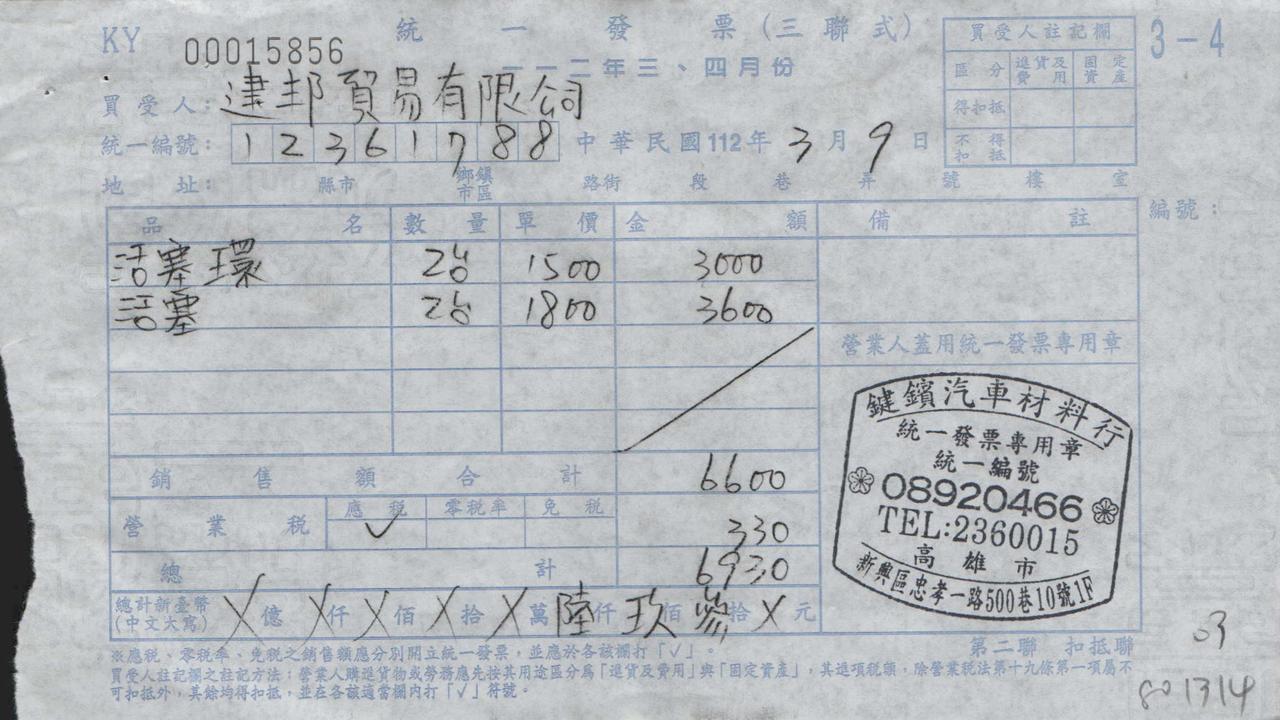 KY 00015856 統一發票(三聯式) 3-4
一一二年三、四月份
買受人註記欄
區分 進貨及費用 固定資產
得扣抵
不得扣抵
買受人: 建邦貿易有限公司
統一編號: 12361788 中華民國112年3月9日
地址: 縣市 鄉鎮市區 路街 段 巷 弄 號 樓 室
品名 數量 單價 金額 備註 編號:
活塞環 2台 1500 3000
活塞 2台 1800 3600
營業人蓋用統一發票專用章
銷售額合計 6600
營業稅 應稅 ✓ 零稅率 免稅 330
總計 6930
總計新臺幣(中文大寫) X億X仟X佰X拾X萬陸仟玖佰參拾X元
鍵鑌汽車材料行
統一發票專用章
統一編號
08920466
TEL:2360015
高雄市
新興區忠孝一路500巷10號1F
第二聯 扣抵聯
※應稅、零稅率、免稅之銷售額應分別開立統一發票,並應於各該欄打「✓」。
買受人註記欄之註記方法:營業人購進貨物或勞務應先按其用途區分為「進貨及費用」與「固定資產」,其進項稅額,除營業稅法第十九條第一項屬不
可扣抵外,其餘均得扣抵,並在各該適當欄內打「✓」符號。
03
801314